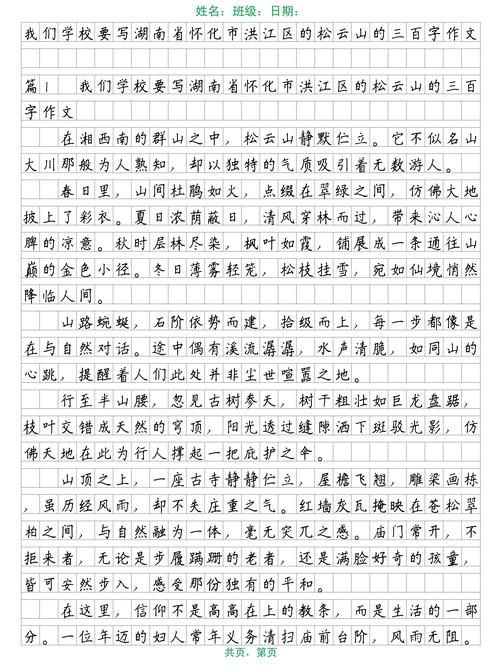 姓名：班级：日期：
我们学校要写湖南省怀化市洪江区的松云山的三百字作文
篇1　我们学校要写湖南省怀化市洪江区的松云山的三百
字作文
在湘西南的群山之中，松云山静默伫立。它不似名山
大川那般为人熟知，却以独特的气质吸引着无数游人。
春日里，山间杜鹃如火，点缀在翠绿之间，仿佛大地
披上了彩衣。夏日浓荫蔽日，清风穿林而过，带来沁人心
脾的凉意。秋时层林尽染，枫叶如霞，铺展成一条通往山
巅的金色小径。冬日薄雾轻笼，松枝挂雪，宛如仙境悄然
降临人间。
山路蜿蜒，石阶依势而建，拾级而上，每一步都像是
在与自然对话。途中偶有溪流潺潺，水声清脆，如同山的
心跳，提醒着人们此处并非尘世喧嚣之地。
行至半山腰，忽见古树参天，树干粗壮如巨龙盘踞，
枝叶交错成天然的穹顶，阳光透过缝隙洒下斑驳光影，仿
佛天地在此为行人撑起一把庇护之伞。
山顶之上，一座古寺静静伫立，屋檐飞翘，雕梁画栋
，虽历经风雨，却不失庄重之气。红墙灰瓦掩映在苍松翠
柏之间，与自然融为一体，毫无突兀之感。庙门常开，不
拒来者，无论是步履蹒跚的老者，还是满脸好奇的孩童，
皆可安然步入，感受那份独有的平和。
在这里，信仰不是高高在上的教条，而是生活的一部
分。一位年迈的妇人常年义务清扫庙前台阶，风雨无阻。
共页，第页